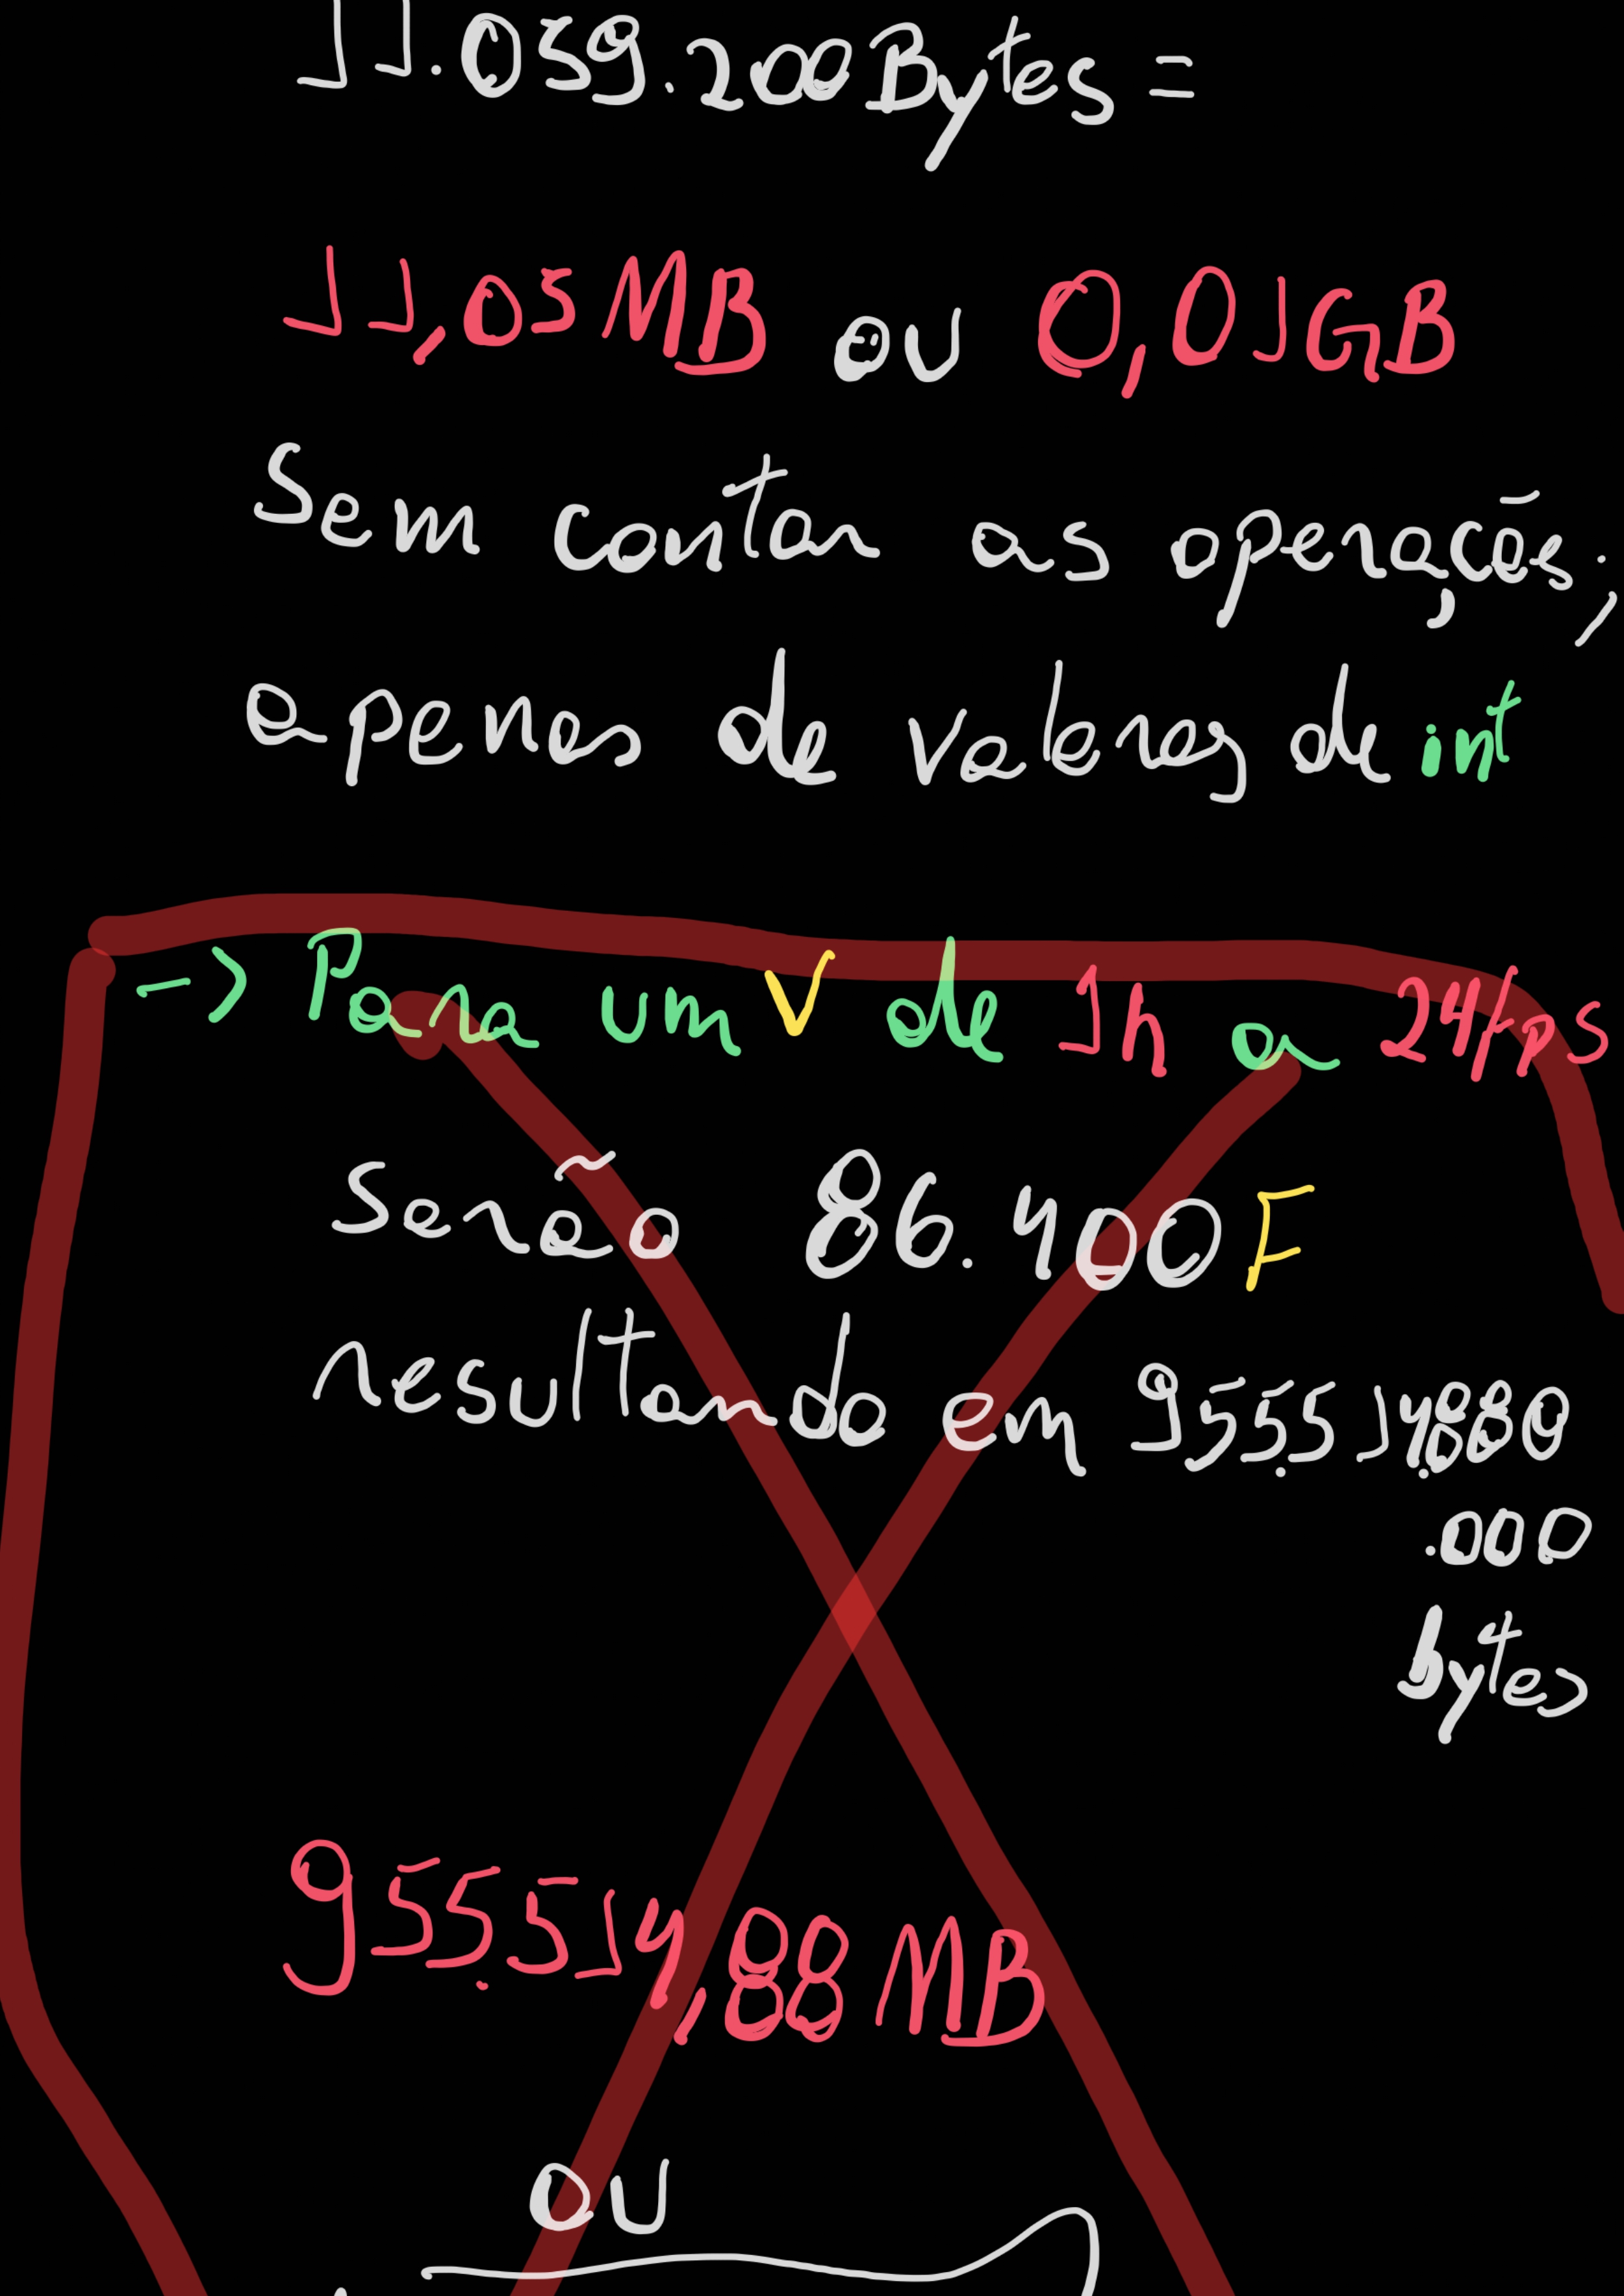 11.059.200 Bytes =
11,05MB ou 0,01GB
Sem contar as operações;
apenas de valores de int
-> Para um V de 1h a 24fps
Serão 86.400F
resultando em 955.514.880
.000
bytes
955.514,88MB
OU